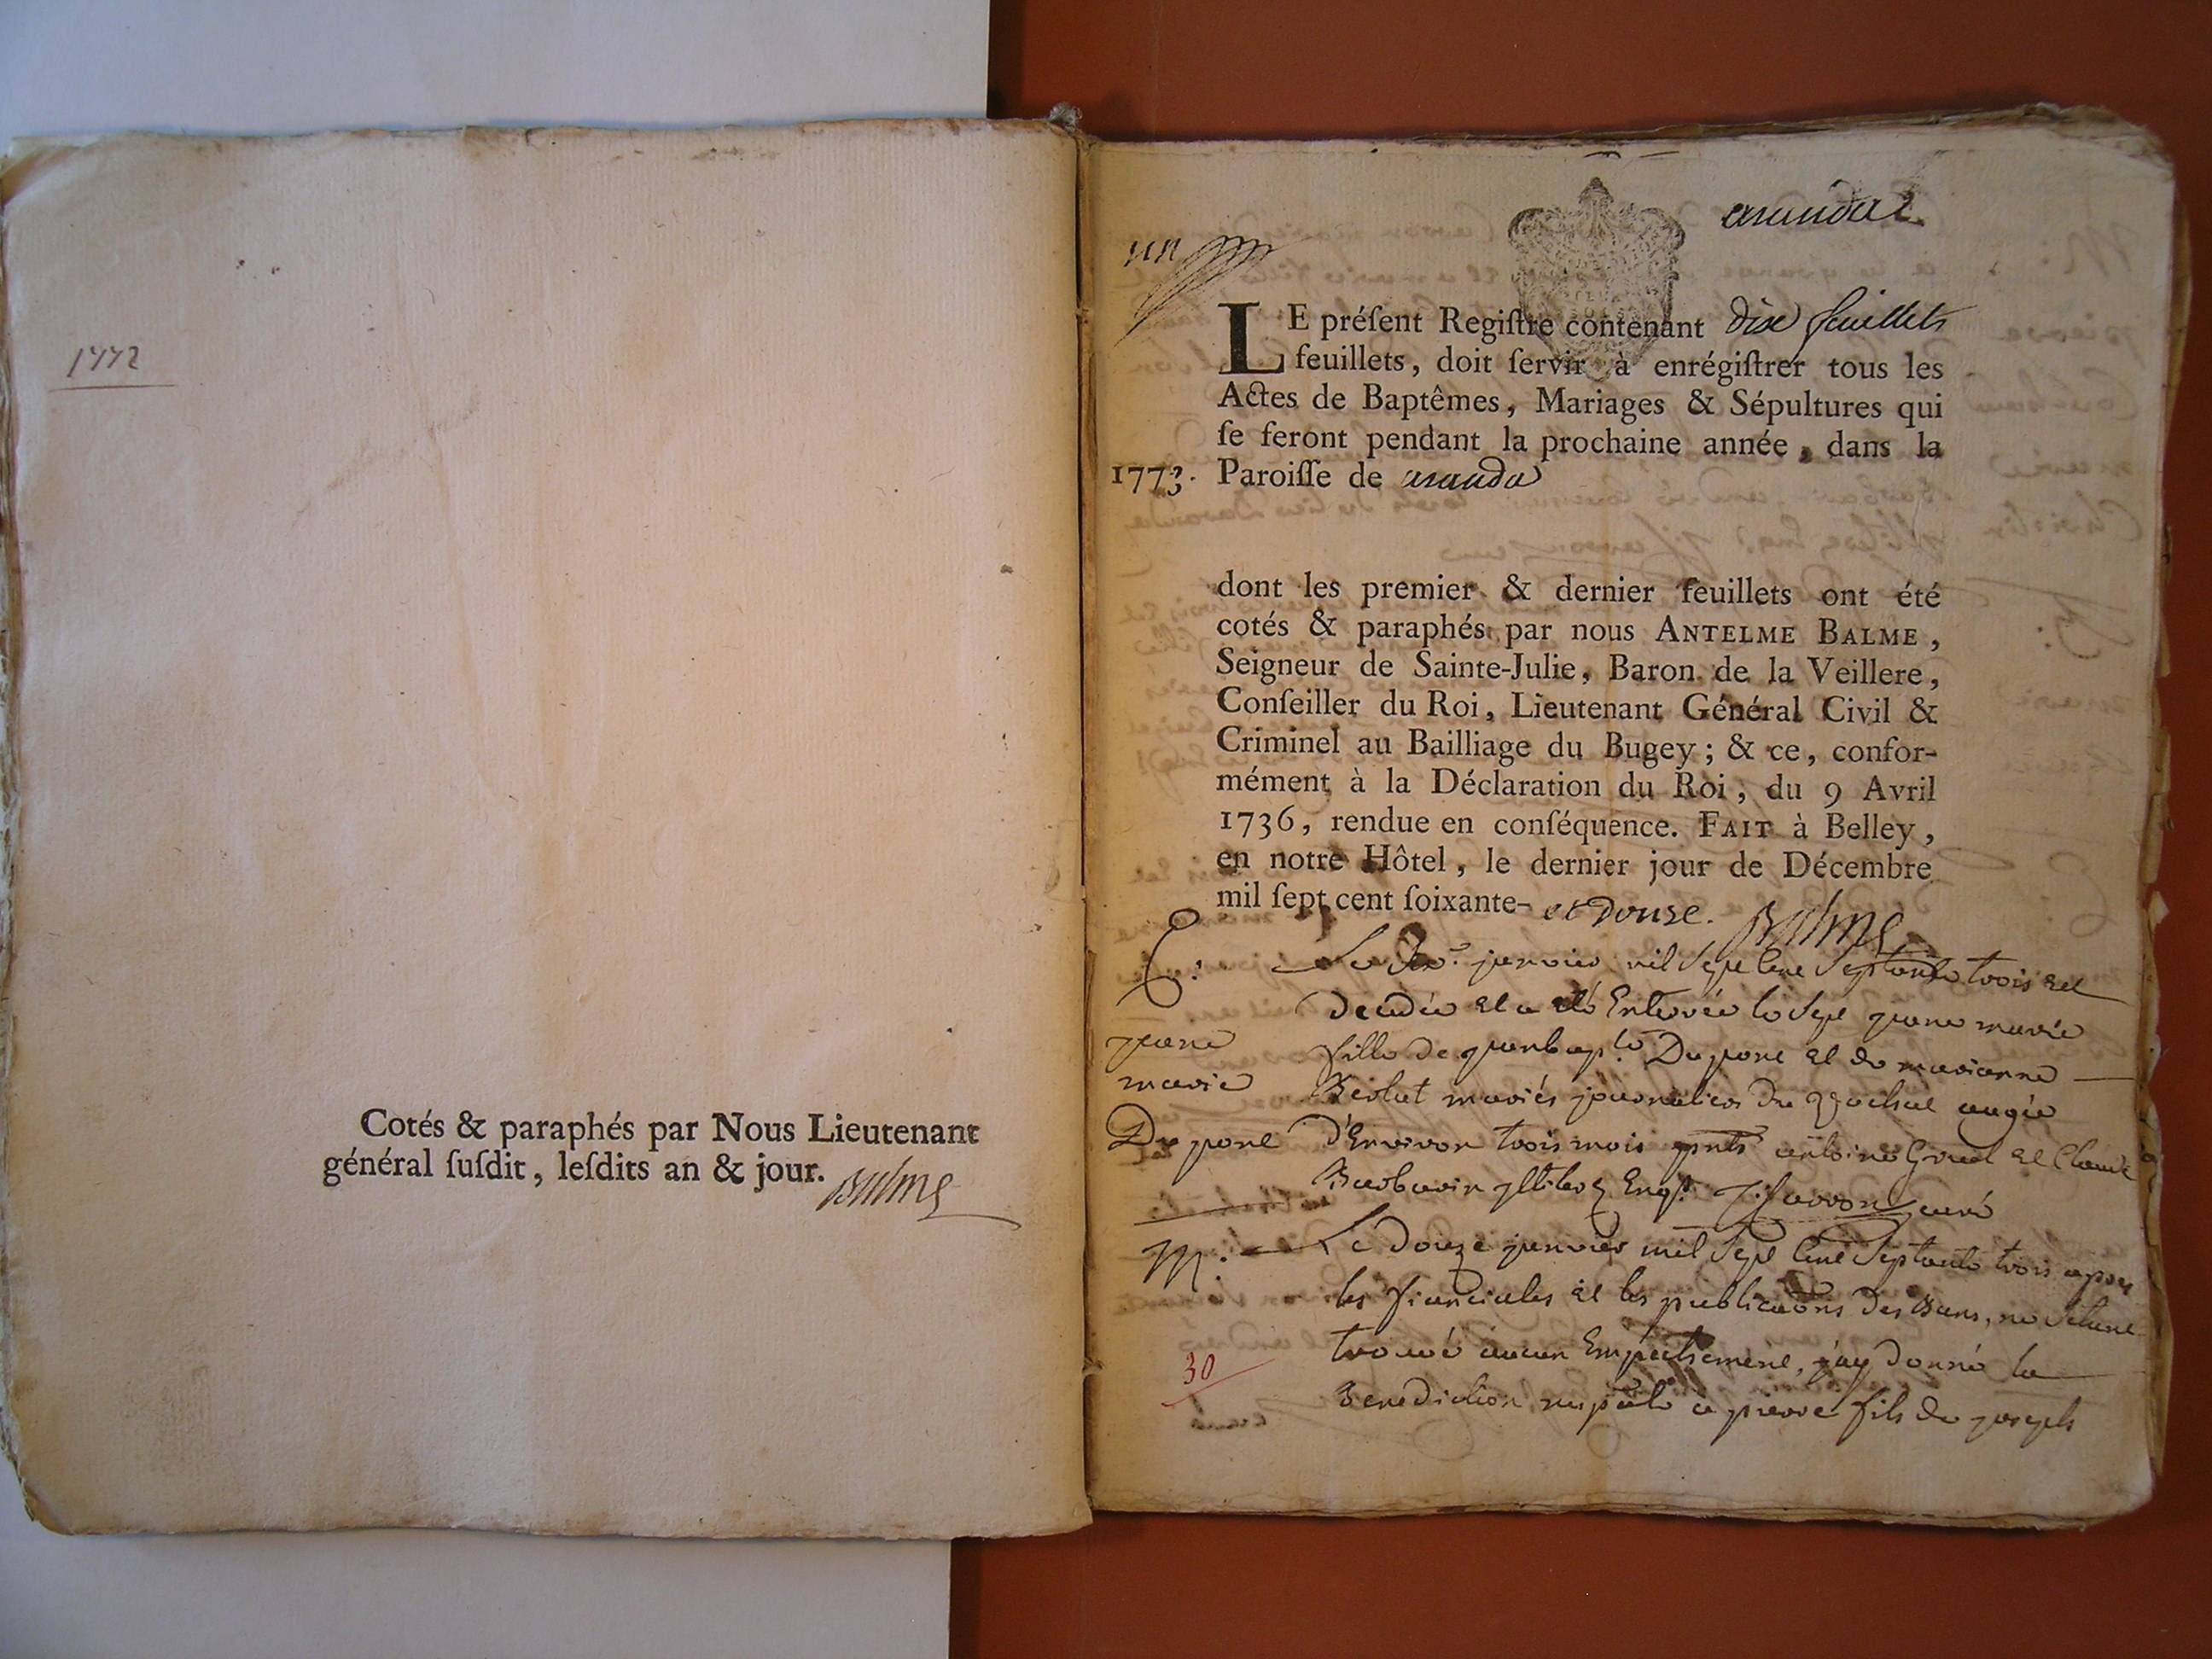 1772
Cotés & paraphés par Nous Lieutenant
général ſuſdit, leſdits an & jour. Balme
un
aranda
LE préſent Regiſtre contenant dix feuillets
feuillets, doit ſervir à enrégiſtrer tous les
Actes de Baptêmes, Mariages & Sépultures qui
ſe feront pendant la prochaine année, dans la
1773. Paroiſſe de aranda
dont les premier & dernier feuillets ont été
cotés & paraphés par nous ANTELME BALME,
Seigneur de Sainte-Julie, Baron de la Veillere,
Conſeiller du Roi, Lieutenant Général Civil &
Criminel au Bailliage du Bugey; & ce, confor-
mément à la Déclaration du Roi, du 9 Avril
1736, rendue en conſéquence. FAIT à Belley,
en notre Hôtel, le dernier jour de Décembre
mil ſept cent ſoixante- et douze. Balme
Le janvier mil sept cent septante trois est
decedée et a eté enterrée le sept jeane marie
jeane
fille de jeanbapte Dupont et de marianne
marie
mariés journalier du agée
Dupont
d'environ trois mois pnts antoine et Claude
illiteres enqs. Savarron curé
M: Le douze janvier mil sept cent septante trois apres
les fiancialles et les publicaôns des Bans, ne s'etant
trouvé aucun empechement, j'ay donné la
30
Benediction nuptiale a pierre fils de joseph